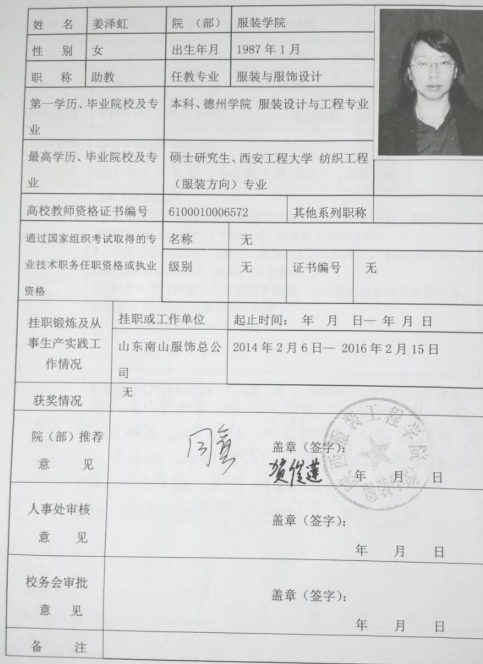 姓 名 姜泽虹 院（部） 服装学院
性 别 女 出生年月 1987 年 1 月
职 称 助教 任教专业 服装与服饰设计
第一学历、毕业院校及专业 本科、德州学院 服装设计与工程专业
最高学历、毕业院校及专业 硕士研究生、西安工程大学 纺织工程（服装方向）专业
高校教师资格证书编号 6100010006572 其他系列职称
通过国家组织考试取得的专业技术职务任职资格或执业资格
名称 无
级别 无 证书编号 无
挂职锻炼及从事生产实践工作情况
挂职或工作单位 起止时间： 年 月 日— 年 月 日
山东南山服饰总公司 2014 年 2 月 6 日— 2016 年 2 月 15 日
获奖情况 无
院（部）推荐意 见
同意
盖章（签字）：
贺俊莲
年 月 日
人事处审核意 见
盖章（签字）：
年 月 日
校务会审批意 见
盖章（签字）：
年 月 日
备 注